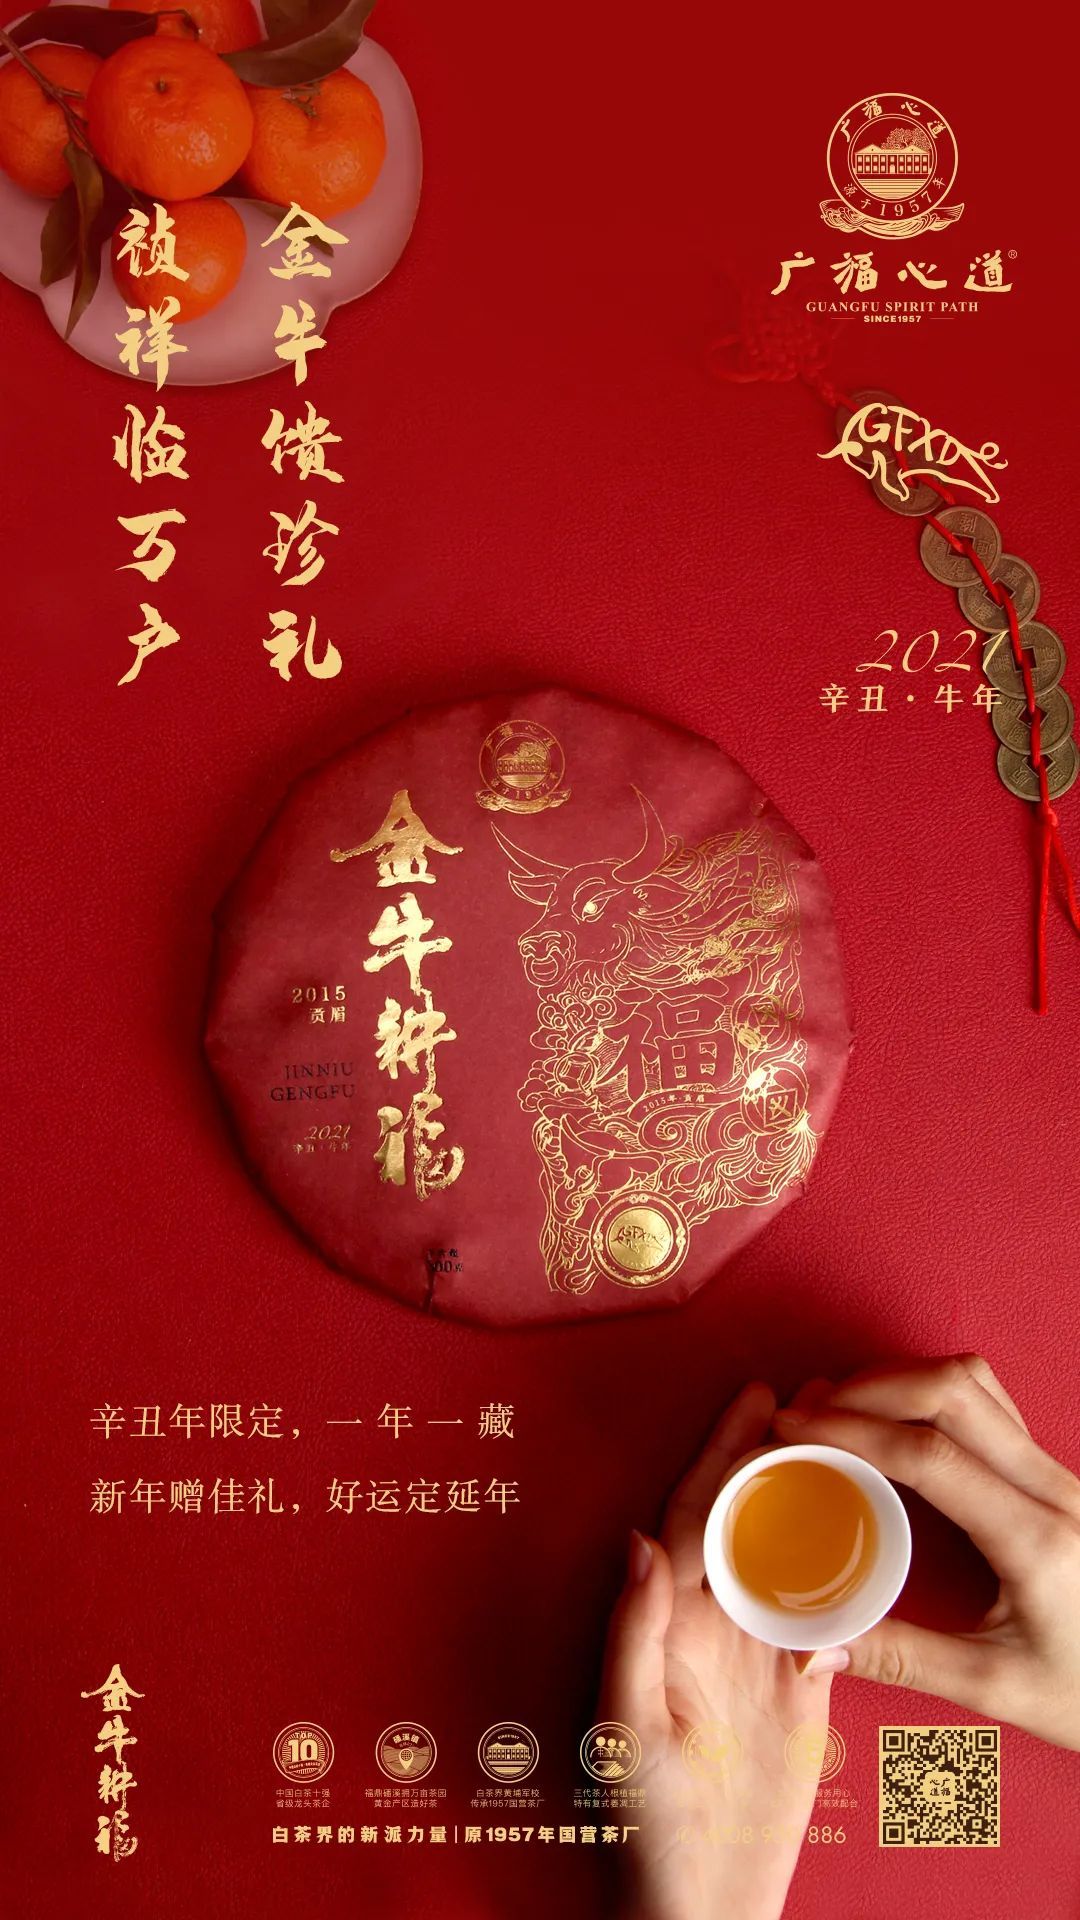 金牛馈珍礼
祯祥临万户
广福心道
源于1957年
广福心道®
GUANGFU SPIRIT PATH
SINCE1957
GFXD
2021
辛丑·牛年
广福心道
源于1957年
金牛耕福
2015
贡眉
JINNIU
GENGFU
2021
辛丑·牛年
福
2015年·贡眉
GFXD
辛丑年限定，一年一藏
新年赠佳礼，好运定延年
金牛耕福
TOP
10
中国白茶十强
省级龙头茶企
磻溪镇
福鼎磻溪拥万亩茶园
黄金产区造好茶
SINCE1957
白茶界黄埔军校
传承1957国营茶厂
三代茶人根植福鼎
特有复式萎凋工艺
服务用心
白茶界的新派力量|原1957年国营茶厂
886
广福心道